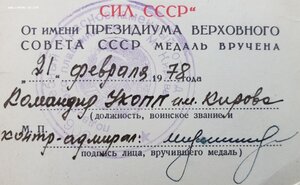 СИЛ СССР“
От имени ПРЕЗИДИУМА ВЕРХОВНОГО
СОВЕТА СССР МЕДАЛЬ ВРУЧЕНА
„21“ февраля 1978 года
Командир УКОПП им. Кирова
(должность, воинское звание и
М. П. контр-адмирал:
подпись лица, вручившего медаль)